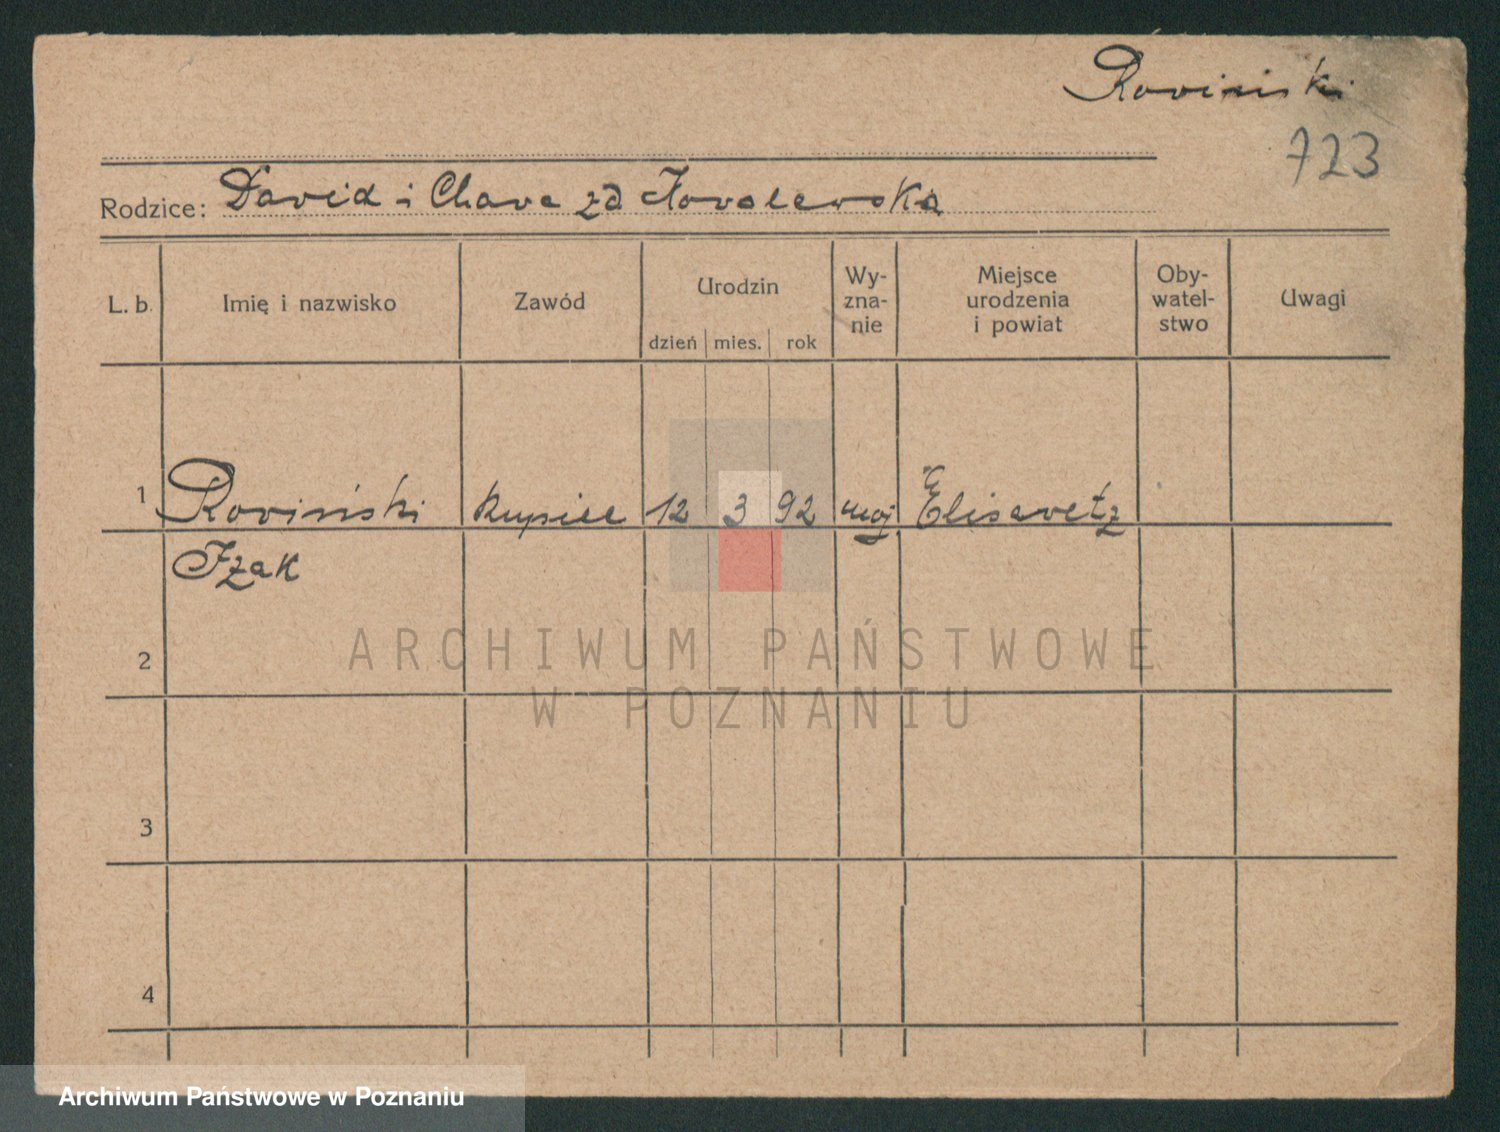 Roviński
723
Rodzice: David i Chava zd Kovalewska
L. b. Imię i nazwisko Zawód Urodzin dzień mies. rok Wy-zna-nie Miejsce urodzenia i powiat Oby-watel-stwo Uwagi
1 Roviński kupiec 12 3 92 moj. Elisavetz
Izak
2
ARCHIWUM PAŃSTWOWE
W POZNANIU
3
4
Archiwum Państwowe w Poznaniu